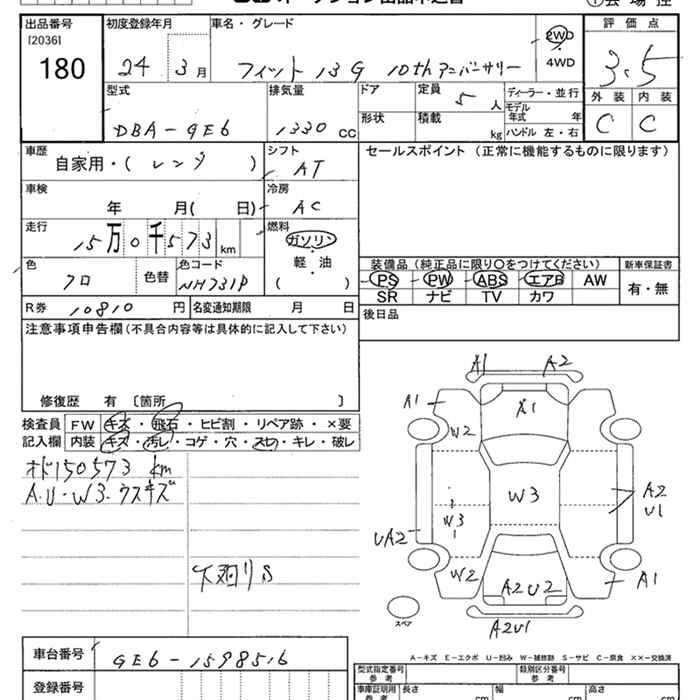 出品番号
[2036]
180
初度登録年月
24年 3月
車名・グレード
フィット 13G 10thアニバーサリー
2WD
・
4WD
評価点
3.5
外装 内装
C C
型式
DBA-GE6
排気量
1330 cc
ドア
形状
定員
5 人
積載
kg
ディーラー・並行
モデル年式 年
ハンドル 左・右
車歴
自家用・( レンジ )
シフト
AT
セールスポイント (正常に機能するものに限ります)
車検
年 月( 日)
冷房
AC
走行
15万0千573 km
燃料
ガソリン
軽・油
( )
色
クロ
色替
色コード
NH731P
装備品 (純正品に限り○をつけてください)
PS PW ABS エアB AW
SR ナビ TV カワ
新車保証書
有・無
R券 10810 円
名変通知期限 月 日
後日品
注意事項申告欄(不具合内容等は具体的に記入して下さい)
修復歴 有 〔箇所 〕
検査員
記入欄
FW キズ・飛石・ヒビ割・リペア跡・×要
内装 キズ・汚レ・コゲ・穴・スレ・キレ・破レ
オド150573 km
A・U・W3・ウスキズ
下廻りS
A1 A2
A1
A1
W2
W3
W3
A2
U1
UA2
W2
A2U2
A1
A2U1
スペア
A-キズ E-エクボ U-凹み W-補修跡 S-サビ C-腐食 ××-交換済
車台番号
GE6-1598516
登録番号
型式指定番号
参考
類別区分番号
参考
車庫証明用
参考
長さ cm
幅 cm
高さ cm